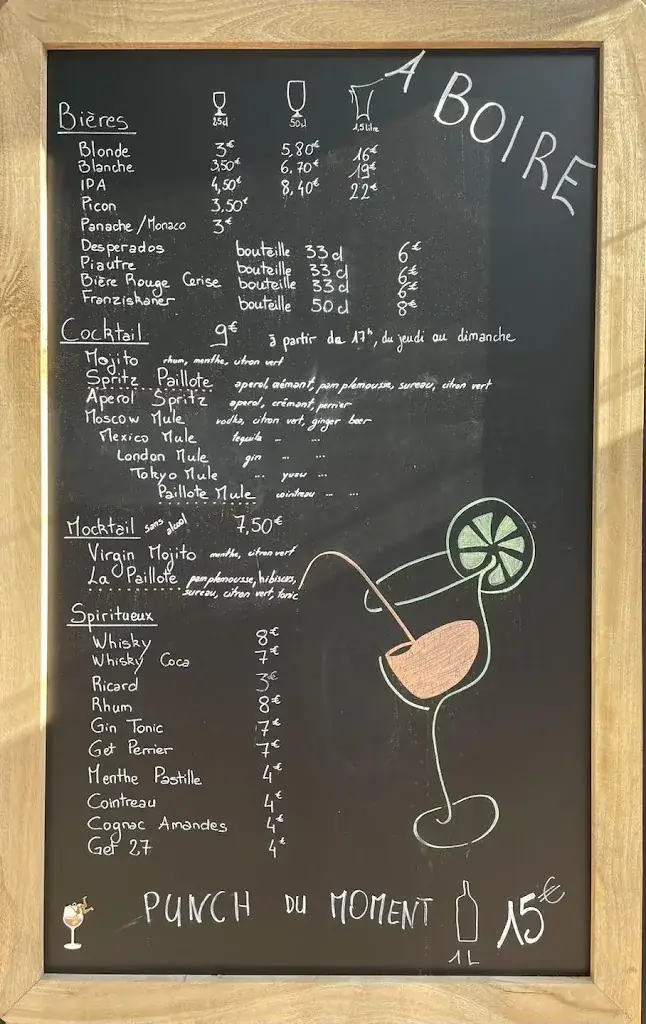 A BOIRE
Bières 25cl 50cl 1,5 litre
Blonde 3€ 5,80€ 16€
Blanche 3,50€ 6,70€ 19€
IPA 4,50€ 8,40€ 22€
Picon 3,50€
Panache/Monaco 3€
Desperados bouteille 33 cl 6€
Piautre bouteille 33 cl 6€
Bière Rouge Cerise bouteille 33 cl 6€
Franziskaner bouteille 50 cl 8€
Cocktail 9€ à partir de 17h, du jeudi au dimanche
Mojito rhum, menthe, citron vert
Spritz Paillote aperol, crémant, pamplemousse, sureau, citron vert
Aperol Spritz aperol, crémant, perrier
Moscow Mule vodka, citron vert, ginger beer
Mexico Mule tequila ... ...
London Mule gin ... ...
Tokyo Mule ... yuzu ...
Paillote Mule cointreau ... ...
Mocktail sans alcool 7,50€
Virgin Mojito menthe, citron vert
La Paillote pamplemousse, hibiscus,
sureau, citron vert, tonic
Spiritueux
Whisky 8€
Whisky Coca 7€
Ricard 3€
Rhum 8€
Gin Tonic 7€
Get Perrier 7€
Menthe Pastille 4€
Cointreau 4€
Cognac Amandes 4€
Get 27 4€
PUNCH DU MOMENT 15€
1L